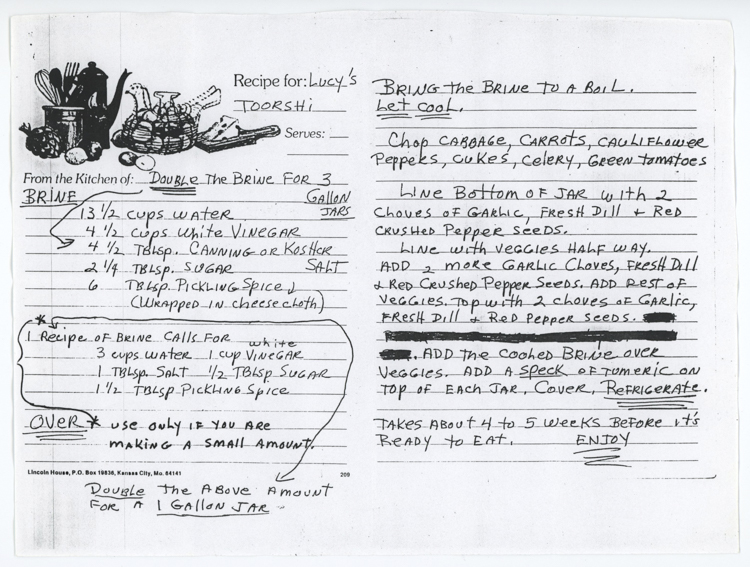 Recipe for: Lucy's
TOORSHI
Serves:
From the Kitchen of: DOUBLE THE BRINE FOR 3
GALLON
JARS
BRINE
13 1/2 CUPS WATER
4 1/2 CUPS WHITE VINEGAR
4 1/2 TBLSP. CANNING OR KOSHER
SALT
2 1/4 TBLSP. SUGAR
6 TBLSP. PICKLING SPICE
(WRAPPED IN CHEESE CLOTH)
*
1 RECIPE OF BRINE CALLS FOR
3 CUPS WATER 1 CUP white VINEGAR
1 TBLSP. SALT 1/2 TBLSP SUGAR
1 1/2 TBLSP PICKLING SPICE
OVER * USE ONLY IF YOU ARE
MAKING A SMALL AMOUNT.
Lincoln House, P.O. Box 19836, Kansas City, Mo. 64141
209
DOUBLE THE ABOVE AMOUNT
FOR A 1 GALLON JAR
BRING the BRINE TO A BOIL.
LET COOL.
Chop CABBAGE, CARROTS, CAULIFLOWER
PEPPERS, CUKES, CELERY, GREEN TOMATOES
LINE BOTTOM OF JAR WITH 2
CLOVES OF GARLIC, FRESH DILL & RED
CRUSHED PEPPER SEEDS.
LINE WITH VEGGIES HALF WAY.
ADD 2 MORE GARLIC CLOVES, FRESH DILL
& RED CRUSHED PEPPER SEEDS. ADD REST OF
VEGGIES. TOP WITH 2 CLOVES OF GARLIC,
FRESH DILL & RED PEPPER SEEDS.
. ADD THE COOLED BRINE OVER
VEGGIES. ADD A SPECK OF TUMERIC ON
TOP OF EACH JAR. COVER, REFRIGERATE.
TAKES ABOUT 4 TO 5 WEEKS BEFORE IT'S
READY TO EAT. ENJOY